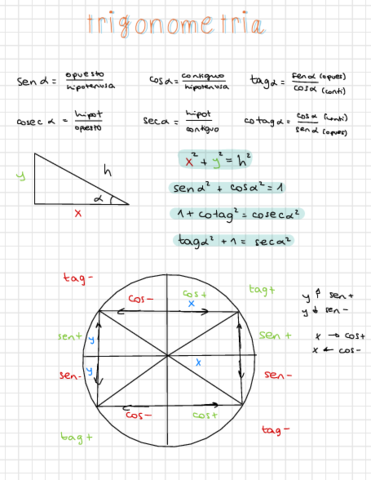 trigonometria
sen α = opuesto/hipotenusa cos α = contiguo/hipotenusa tag α = sen α (opues)/cos α (conti)
cosec α = hipot/opesto sec α = hipot/contiguo cotag α = cos α (conti)/sen α (opues)
x² + y² = h²
y h
α
x
sen α² + cos α² = 1
1 + cotag² = cosec α²
tag α² + 1 = sec α²
tag- tag+
cos- cos+
x
y ↑ sen+
y ↓ sen-
sen+ y sen+
x → cos+
x ← cos-
sen- y x sen-
cos- cos+
tag+ tag-